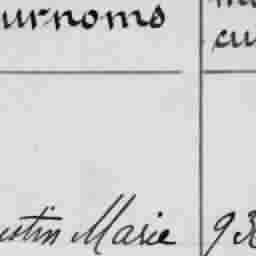 urnoms
cui
ustin Marie 93